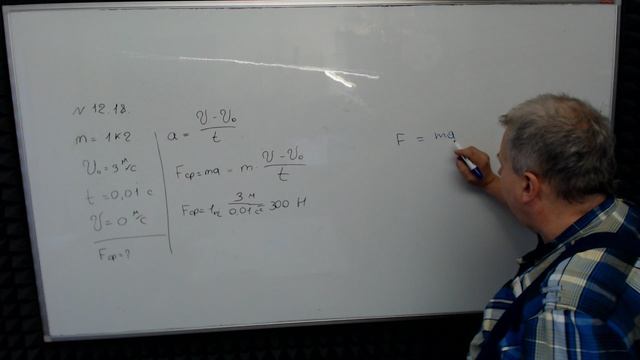 N 12.18.
m = 1 кг
υ₀ = 3 м/с
t = 0,01 с
υ = 0 м/с
Fср = ?
a = (υ - υ₀)/t
Fср = ma = m · (υ - υ₀)/t
Fср = 1кг · 3 м/0,01 с² = 300 Н
F = ma